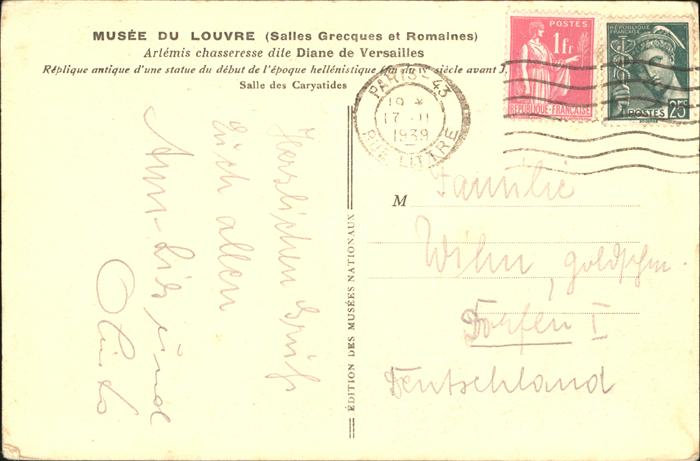 MUSÉE DU LOUVRE (Salles Grecques et Romaines)
Artémis chasseresse dite Diane de Versailles
Réplique antique d'une statue du début de l'époque hellénistique fin du IVe siècle avant J.
Salle des Caryatides
POSTES
1fr
RÉPUBLIQUE-FRANÇAISE
RÉPUBLIQUE FRANÇAISE
POSTES 25c
PARIS-43
19
17 - II
1939
RUE LITTRÉ
Herzlichen Gruß
Euch allen
Ann-Lis und
EDITION DES MUSÉES NATIONAUX
M Familie
Wihn, Goldschm.
Dorfen I
Deutschland